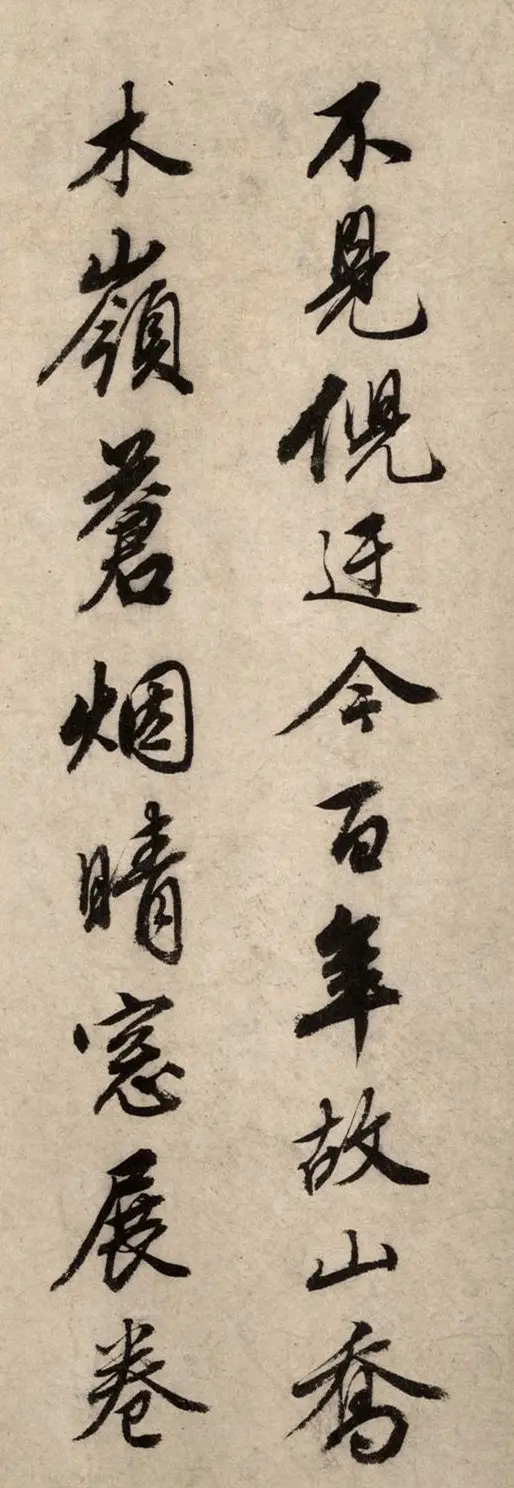 不見倪迂今百年故山喬
木嶺蒼烟晴窓展卷